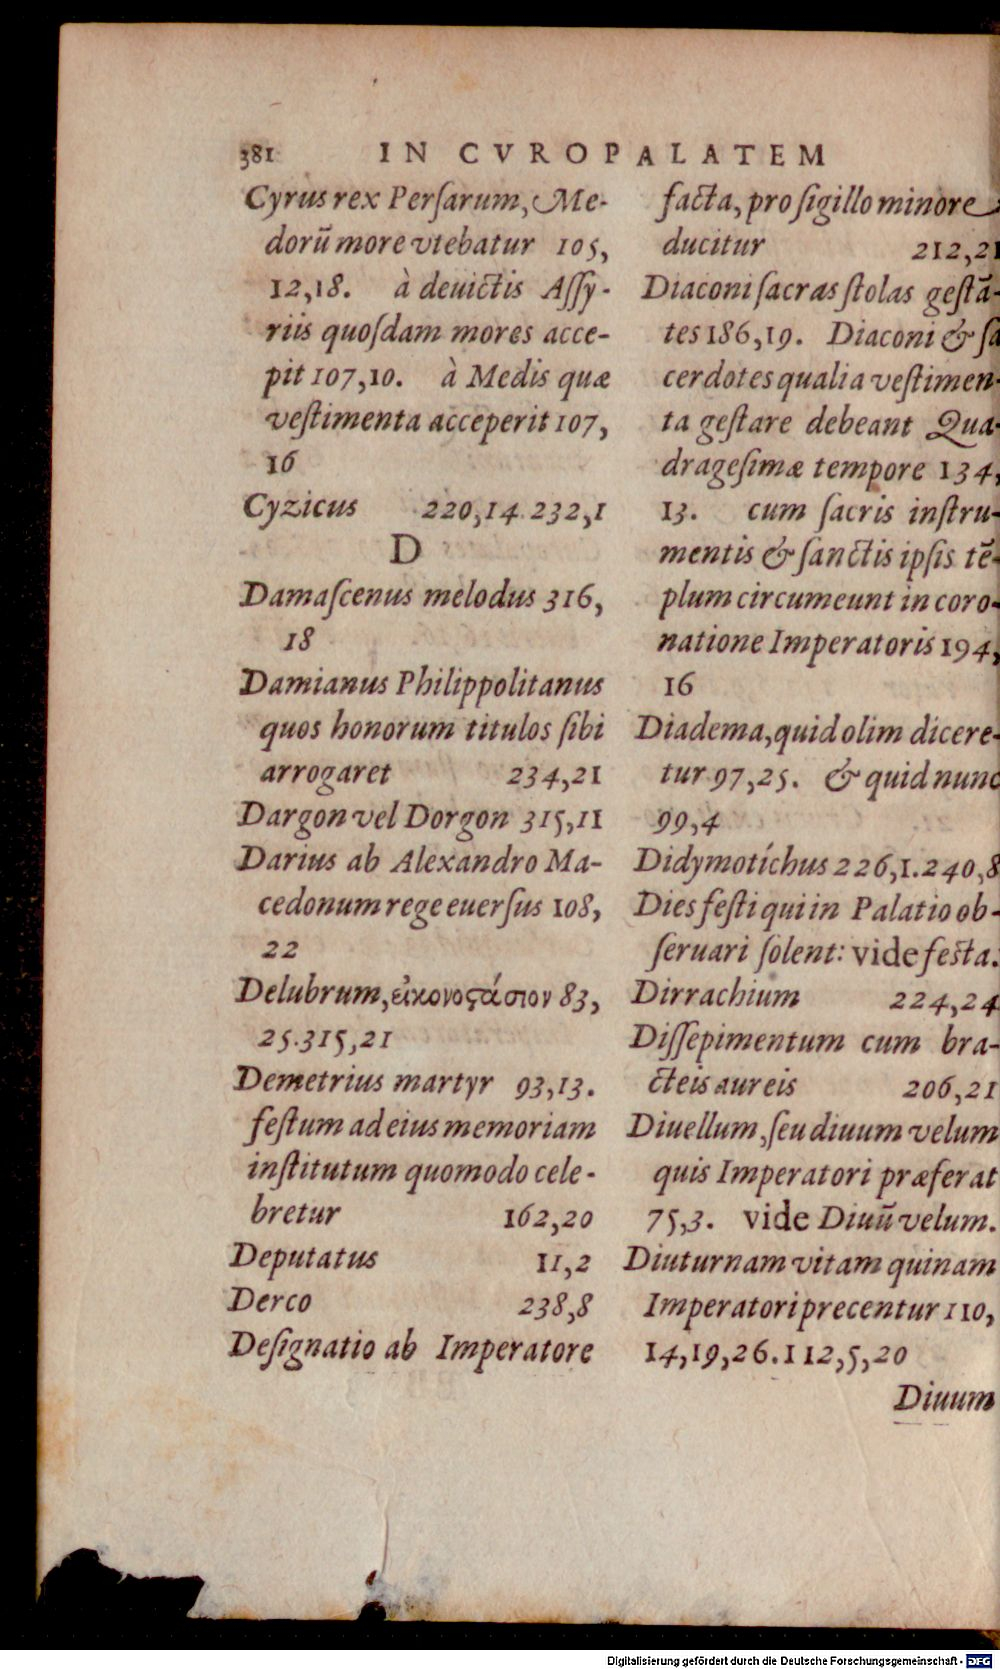 381 IN CVROPALATEM
Cyrus rex Perſarum, Me-
dorū more vtebatur 105,
12,18. à deuictis Aſſy-
riis quoſdam mores acce-
pit 107,10. à Medis quæ
veſtimenta acceperit 107,
16
Cyzicus 220,14.232,1
D
Damaſcenus melodus 316,
18
Damianus Philippolitanus
quos honorum titulos ſibi
arrogaret 234,21
Dargon vel Dorgon 315,11
Darius ab Alexandro Ma-
cedonum rege euerſus 108,
22
Delubrum, εἰκονοϛάσιον 83,
25.315,21
Demetrius martyr 93,13.
feſtum ad eius memoriam
inſtitutum quomodo cele-
bretur 162,20
Deputatus 11,2
Derco 238,8
Deſignatio ab Imperatore
facta, pro ſigillo minore
ducitur 212,21
Diaconi ſacras ſtolas geſtā-
tes 186,19. Diaconi & ſa
cerdotes qualia veſtimen-
ta geſtare debeant Qua-
drageſimæ tempore 134,
13. cum ſacris inſtru-
mentis & ſanctis ipſis tē-
plum circumeunt in coro-
natione Imperatoris 194,
16
Diadema, quid olim dicere-
tur 97,25. & quid nunc
99,4
Didymotíchus 226,1.240,8
Dies feſti qui in Palatio ob-
ſeruari ſolent: vide feſta.
Dirrachium 224,24
Diſſepimentum cum bra-
cteis aureis 206,21
Diuellum, ſeu diuum velum
quis Imperatori præferat
75,3. vide Diuū velum.
Diuturnam vitam quinam
Imperatori precentur 110,
14,19,26.112,5,20
Diuum
Digitalisierung gefördert durch die Deutsche Forschungsgemeinschaft - DFG